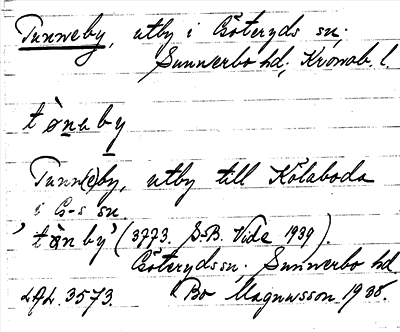 Tunneby, utby i Göteryds sn,
Sunnerbo hd, Kronob. l.
tònaby
Tunn(e)by, utby till Kålaboda
i G-s sn
'tònby' (3773. S.B. Vide 1939).
Göteryds sn, Sunnerbo hd.
LAL. 3573. Bo Magnusson 1935.